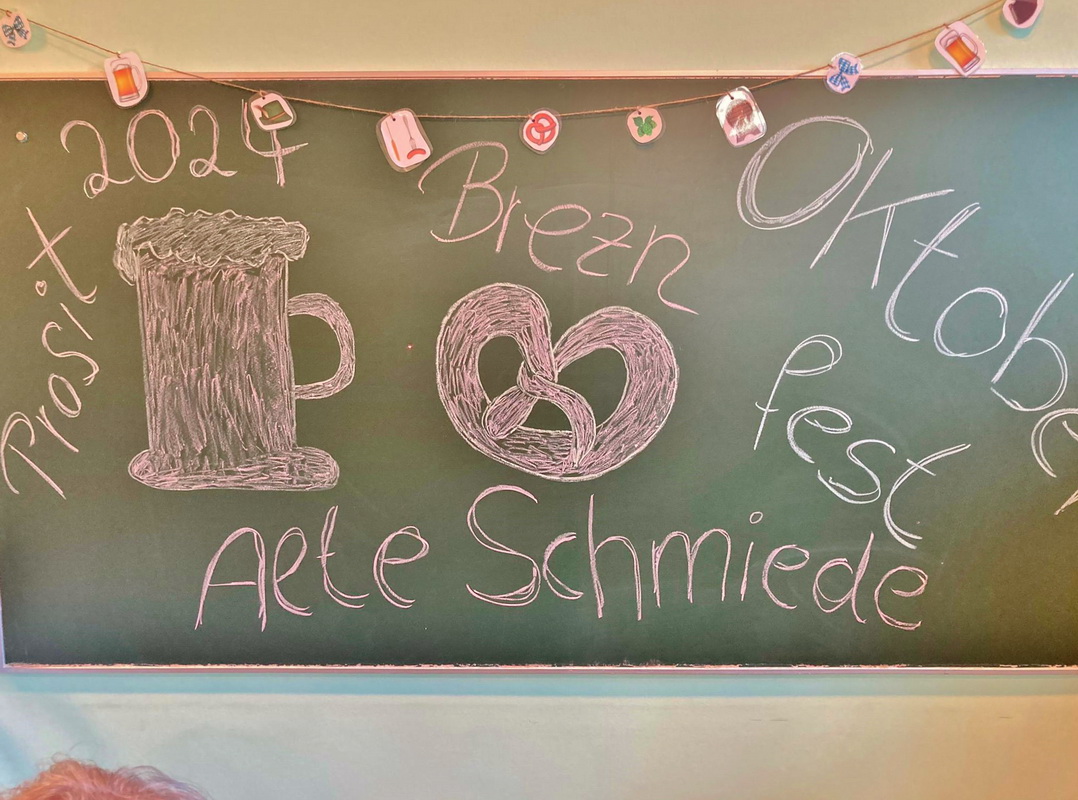 2024
Prosit
Brezn
Oktobe
fest
Alte Schmiede